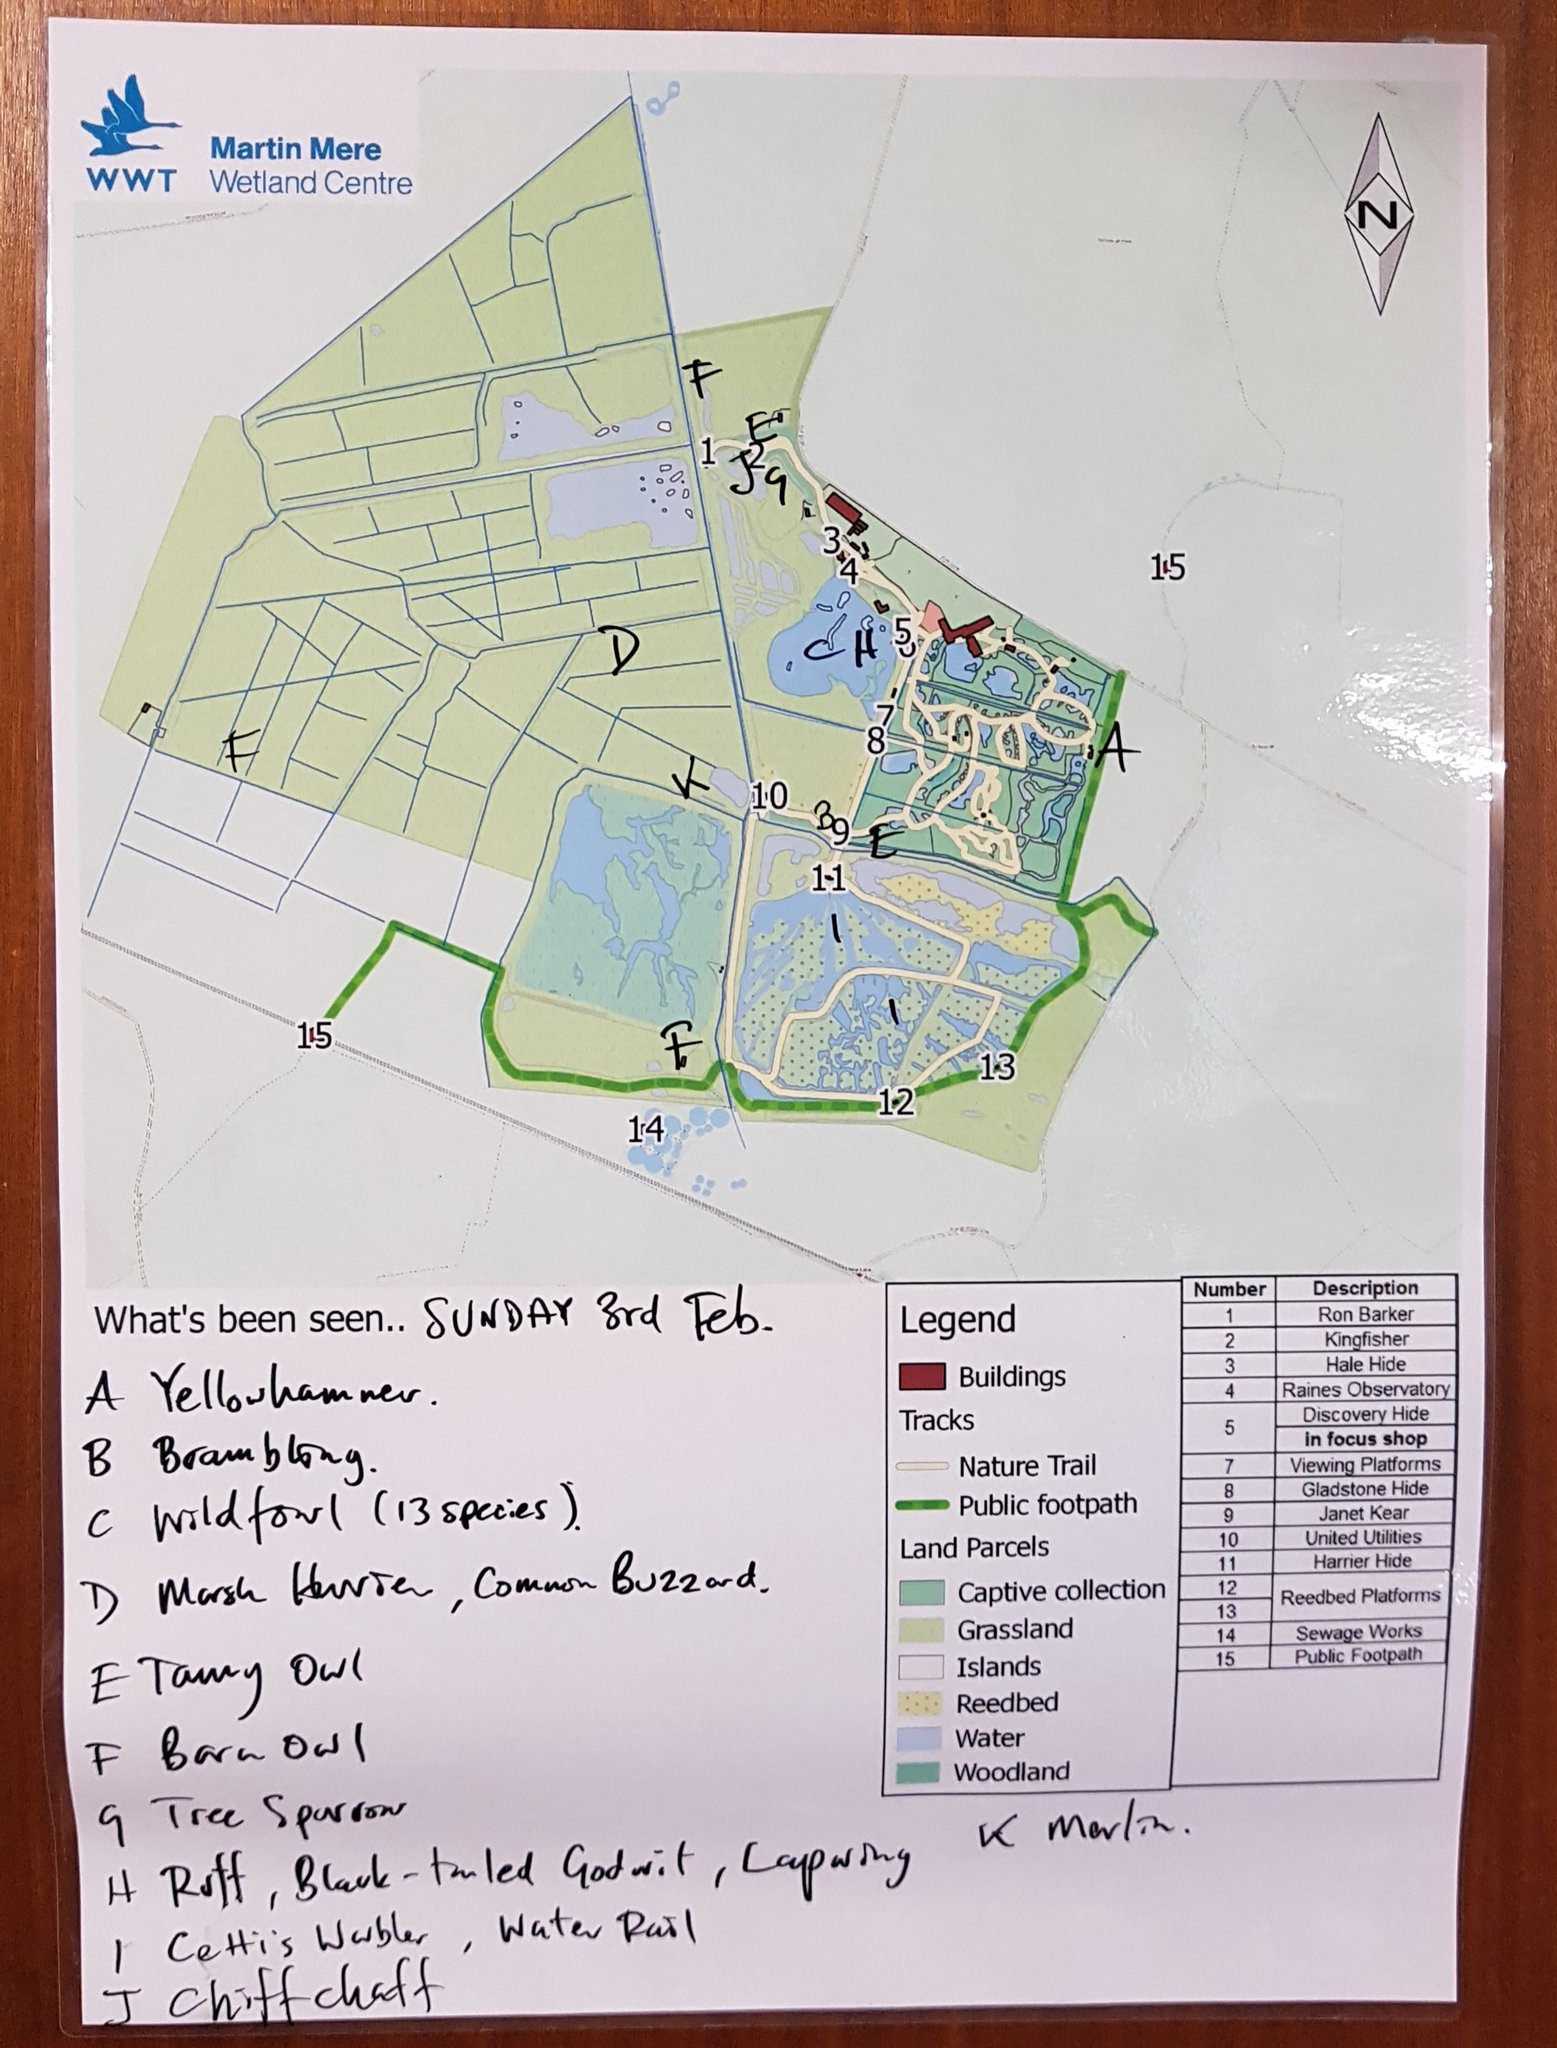 WWT
Martin Mere
Wetland Centre
N
F
E
1
2
J G
3
4
15
5
C H
D
7
8
A
F
K
10
B
9
E
11
I
I
15
F
13
12
14
What's been seen.. SUNDAY 3rd Feb.
A Yellowhammer.
B Brambling.
C Wildfowl (13 species).
D Marsh Harrier, Common Buzzard.
E Tawny Owl
F Barn Owl
G Tree Sparrow
H Ruff, Black-tailed Godwit, Lapwing
I Cetti's Warbler, Water Rail
J Chiffchaff
K Merlin.
Legend
Buildings
Tracks
Nature Trail
Public footpath
Land Parcels
Captive collection
Grassland
Islands
Reedbed
Water
Woodland
Number Description
1 Ron Barker
2 Kingfisher
3 Hale Hide
4 Raines Observatory
5 Discovery Hide
in focus shop
7 Viewing Platforms
8 Gladstone Hide
9 Janet Kear
10 United Utilities
11 Harrier Hide
12 Reedbed Platforms
13
14 Sewage Works
15 Public Footpath